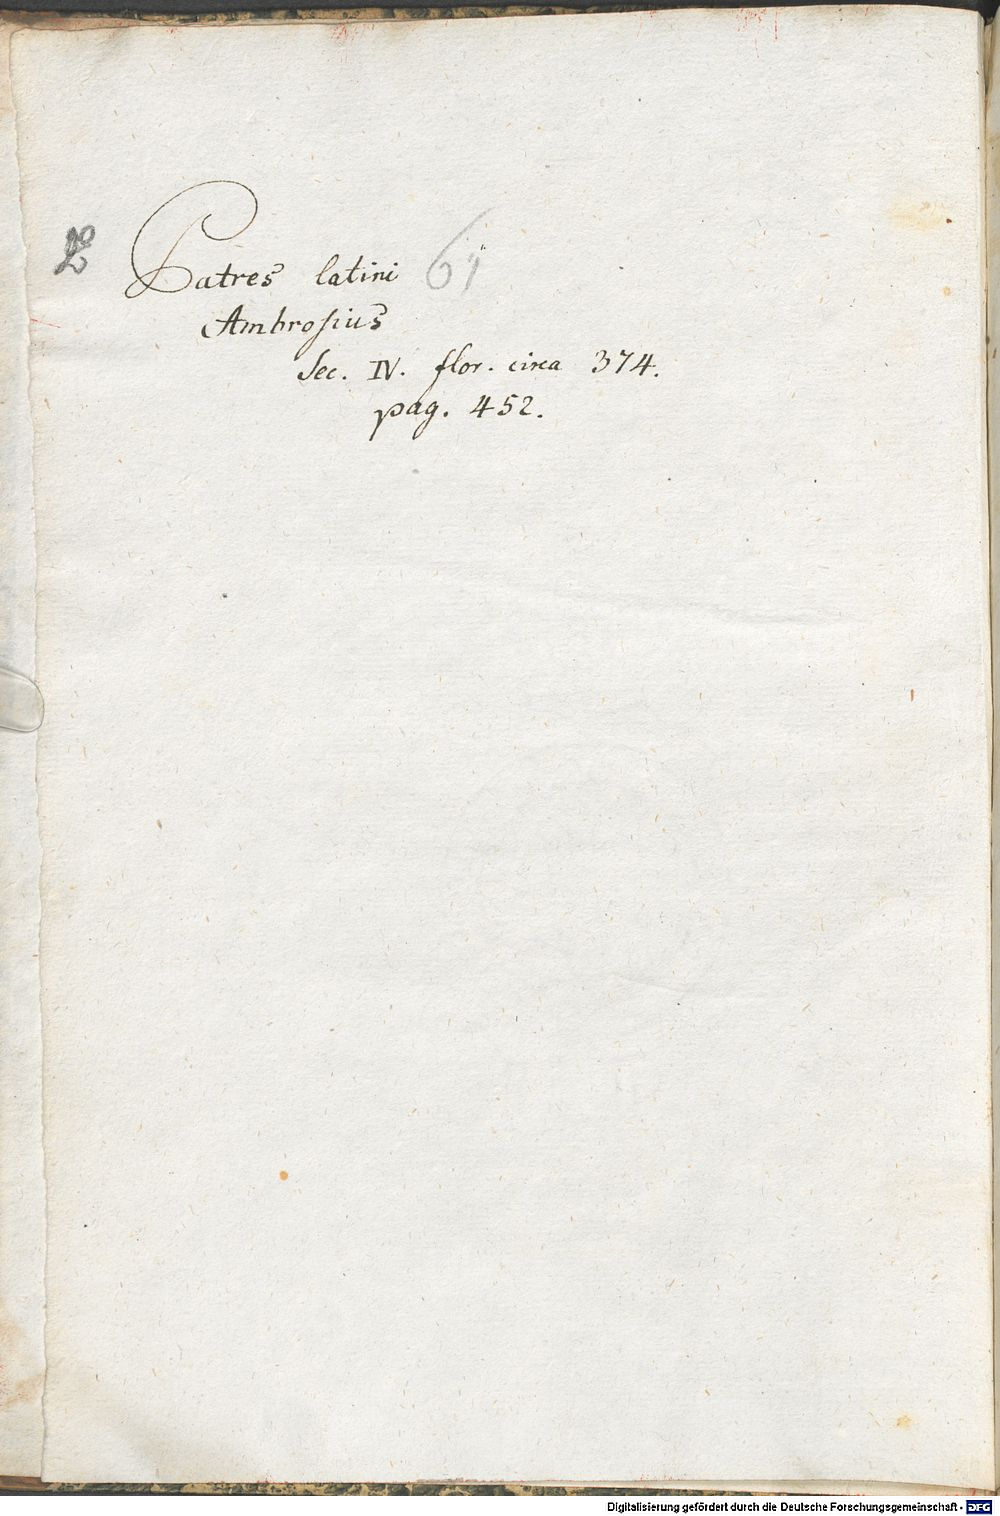 2° Patres latini 61
Ambrosius
Sec. IV. flor. circa 374.
pag. 452.
Digitalisierung gefördert durch die Deutsche Forschungsgemeinschaft - DFG